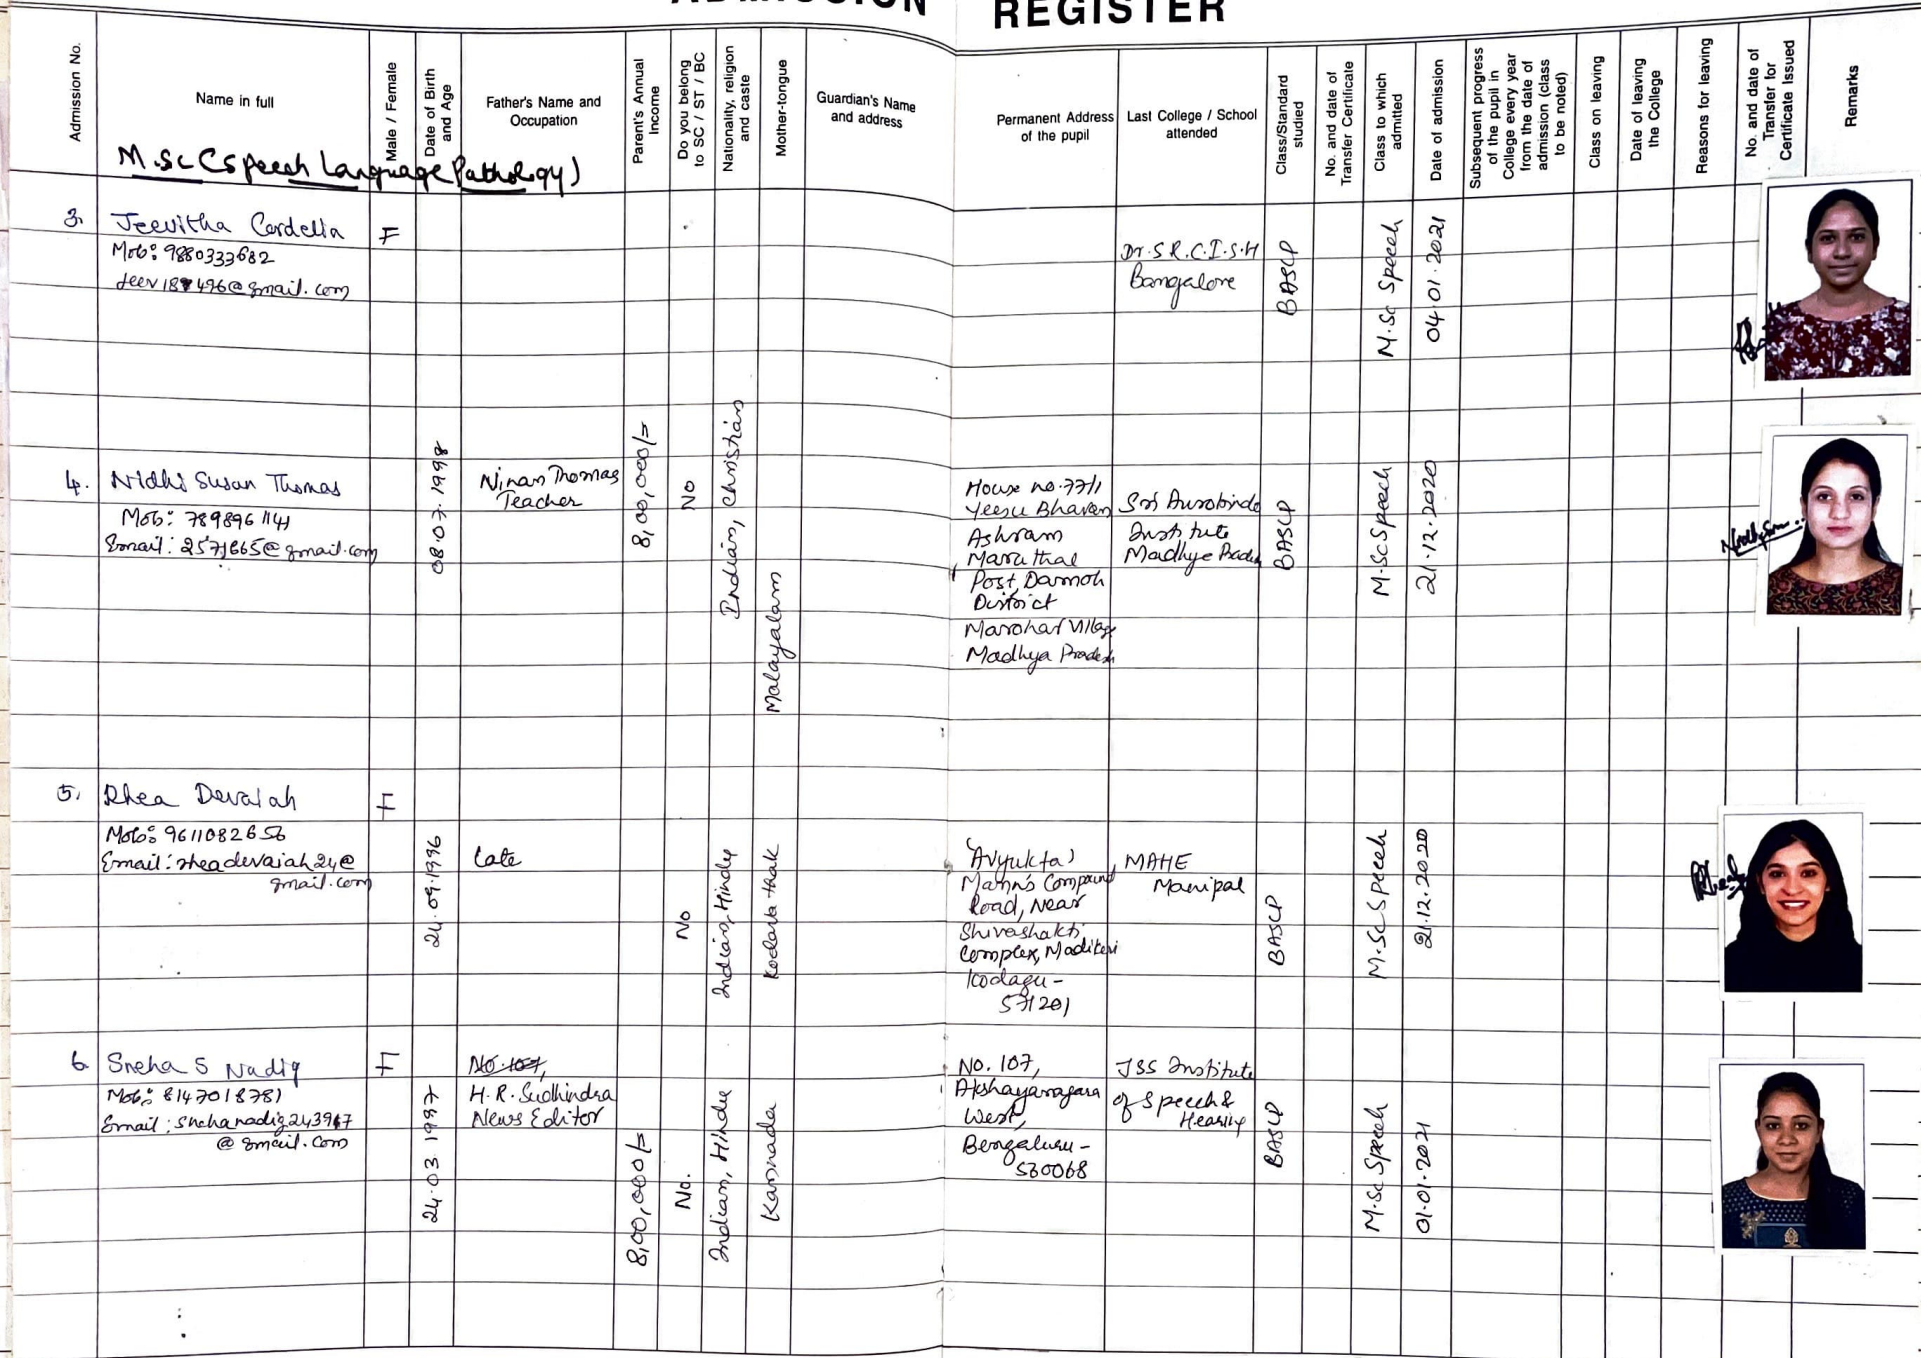 ADMISSION REGISTER
Admission No.
Name in full
Male / Female
Date of Birth and Age
Father's Name and Occupation
Parent's Annual Income
Do you belong to SC / ST / BC
Nationality, religion and caste
Mother-tongue
Guardian's Name and address
Permanent Address of the pupil
Last College / School attended
Class/Standard studied
No. and date of Transfer Certificate
Class to which admitted
Date of admission
Subsequent progress of the pupil in College every year from the date of admission (class to be noted)
Class on leaving
Date of leaving the College
Reasons for leaving
No. and date of Transfer for Certificate Issued
Remarks
M.Sc (Speech Language Pathology)
3. Jeevitha Cordelia F
Mob: 9880333682
Dr. S.R.C.I.S.H
Bangalore
BASLP
M.Sc Speech
04.01.2021
4. Nidhi Susan Thomas
Mob: 7898961141
Email: 2571665@gmail.com
08.07.1998
Ninan Thomas
Teacher
8,00,000/=
No
Indian, Christian
Malayalam
House no. 77/1
Yeesu Bhavan
Ashram
Maruthal
Post, Damoh
District
Marohar Village
Madhya Pradesh
Sri Aurobindo
Institute
Madhya Prade
BASLP
M.Sc Speech
21.12.2020
5. Rhea Devaiah F
Mob: 9611082656
Email: rheadevaiah24@
gmail.com
24.09.1996
Late
No
Indian, Hindu
Kodava thak
'Avyukta'
Mann's Compound
Road, Near
Shivashakti
Complex, Madikeri
Kodagu -
571201
MAHE
Manipal
BASLP
M.Sc Speech
21.12.2020
6. Sneha S Nadig F
Mob: 8147018781
Email: snehanadig243947
@gmail.com
24.03.1997
No. 107,
H.R. Sudhindra
News Editor
8,00,000/=
No.
Indian, Hindu
Kannada
No. 107,
Akshayanagara
West,
Bengaluru -
560068
JSS Institute
of Speech &
Hearing
BASLP
M.Sc Speech
01.01.2021